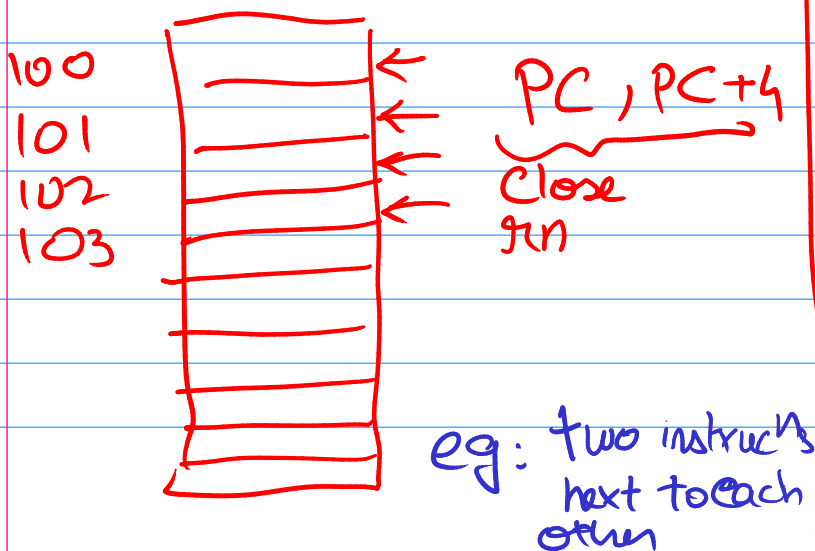 100
101
102
103
PC, PC+4
Close
rn
eg: two instrucns
next to each
other